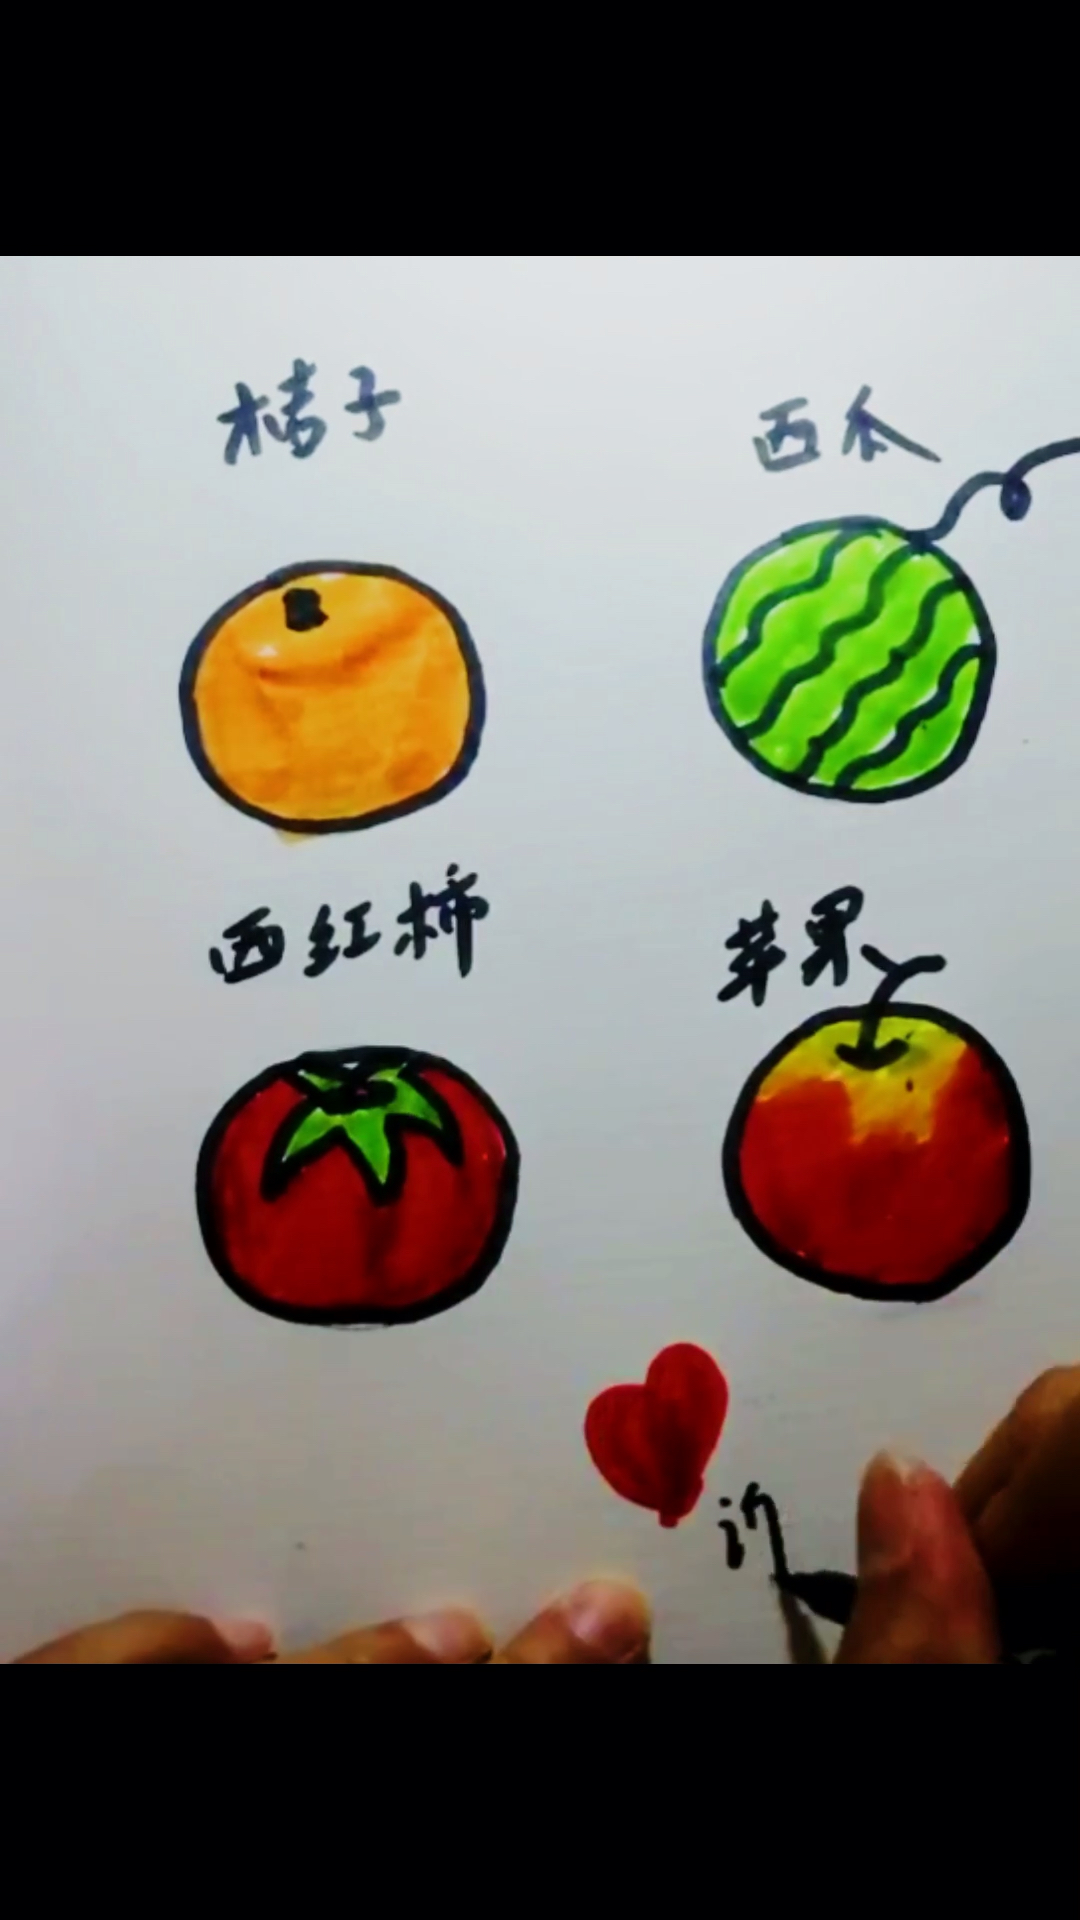 桔子
西瓜
西红柿
苹果